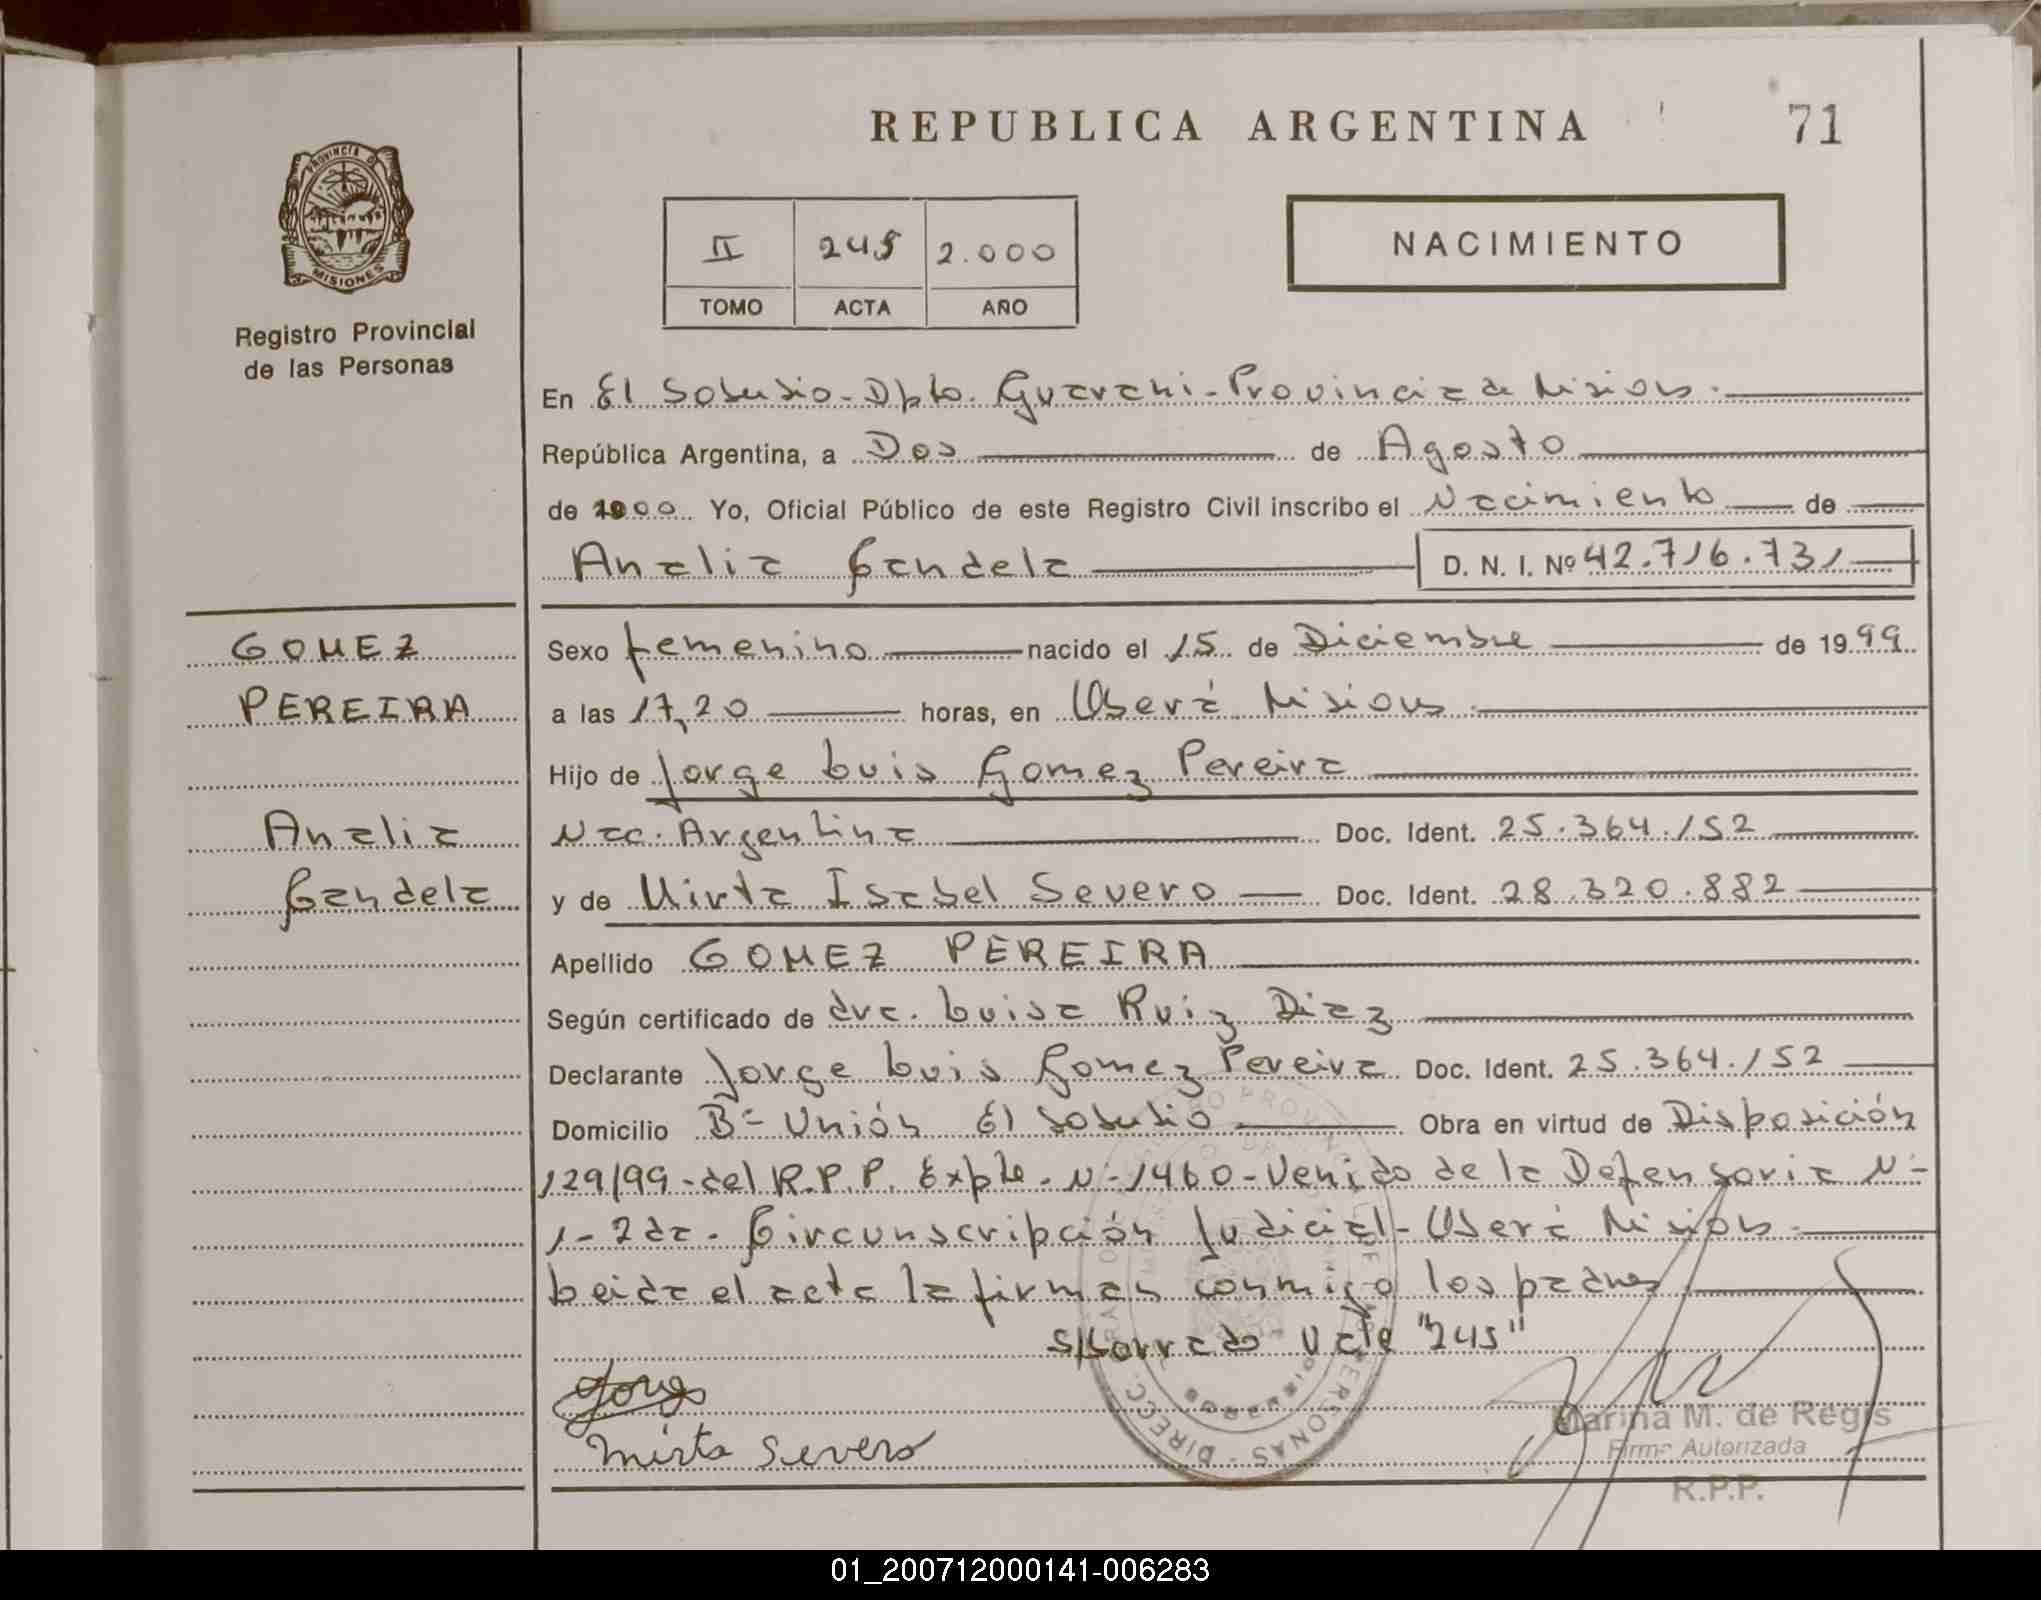 REPUBLICA ARGENTINA
71
PROVINCIA DE
MISIONES
Registro Provincial
de las Personas
II 245 2.000
TOMO ACTA AÑO
NACIMIENTO
En El Soberbio - Dpto. Guarani - Provincia de Misiones.
República Argentina, a Dos de Agosto
de 2000 Yo, Oficial Público de este Registro Civil inscribo el Nacimiento de
Analia Candela D. N. I. Nº 42.716.731
GOMEZ
PEREIRA
Analia
Candela
Sexo femenino nacido el 15 de Diciembre de 1999
a las 17,20 horas, en Oberá Misiones.
Hijo de Jorge Luis Gomez Pereira
Nac. Argentina Doc. Ident. 25.364.152
y de Mirta Isabel Severo Doc. Ident. 28.320.882
Apellido GOMEZ PEREIRA
Según certificado de dra. Luisa Ruiz Diaz
Declarante Jorge Luis Gomez Pereira Doc. Ident. 25.364.152
Domicilio Bº Unión El Soberbio Obra en virtud de Disposición
129/99 - del R.P.P. Expte. Nº 1460 - Venido de la Defensoria Nº
1 - 2da. Circunscripción Judicial - Oberá Misiones.
Leida el acta la firman conmigo los padres.
S/borrado Vale "245"
Jorge
Mirta Severo
Marina M. de Regis
Firma Autorizada
R.P.P.
01_200712000141-006283